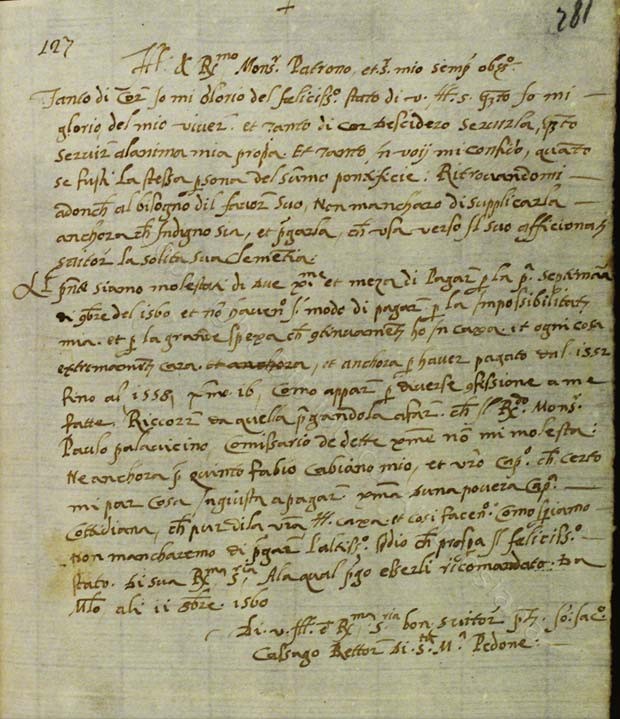 +
281
127
Ill. & R.mo Mons.r Patrono, et S. mio semp obs.o
Tanto di Cor Io mi Glorio del feliciss.o stato di v. Ill. S. q.to Io mi
glorio del mio viver. et Tanto di Cor Desidero Servirla, q.to
Servir alanima mia propa. Et Tanto in voij mi Confido, quāto
se fusti La stessa psona del Sūmo pontefice: Ritrovandomi
adonch al bisogno dil favor suo, Non mancharo di supplicarla
anchora ch Indigno sia, et pgarla, ch usa verso Il suo afficionat
Suitor la solita sua Clemētia:
siamo molestati di Due et meza di Pagar p la p.
di 9bre del 1560 et nō haven.o Il modo di pagar p la Impossibilitat
mia. et p la grande spexa ch ho In caxa et ogni Cosa
extremament Cara et anchora, et anchora p haver pagato dal 1552
fino al 1558, xme 16, Como appar p diverse 9fessione a me
fatte, Riccorr da quella pgandola a far ch Il R.do Mons.r
Paulo palavicino, Comissario de dette xme nō mi molesta:
Ne anchora Quinto Fabio Gabiano mio, et vro Cap.o ch Certo
mi par Cosa Ingiusta a pagar Duna povera Cap.
Cottidiana, ch pur dila vra Ill. Caxa et cosi facen.o Como spiamo
Non mancharemo di pgar Laltiss.o Idio ch prospa Il feliciss.o
stato. Di sua R.ma S.ria, Ala qual pgo esserli ricomandato. Da
M.lo ali 11 1560
Di v. Ill. et R.ma S.ria bon Suitor
Calsago Rettor Di S.ta M.a Pedone.